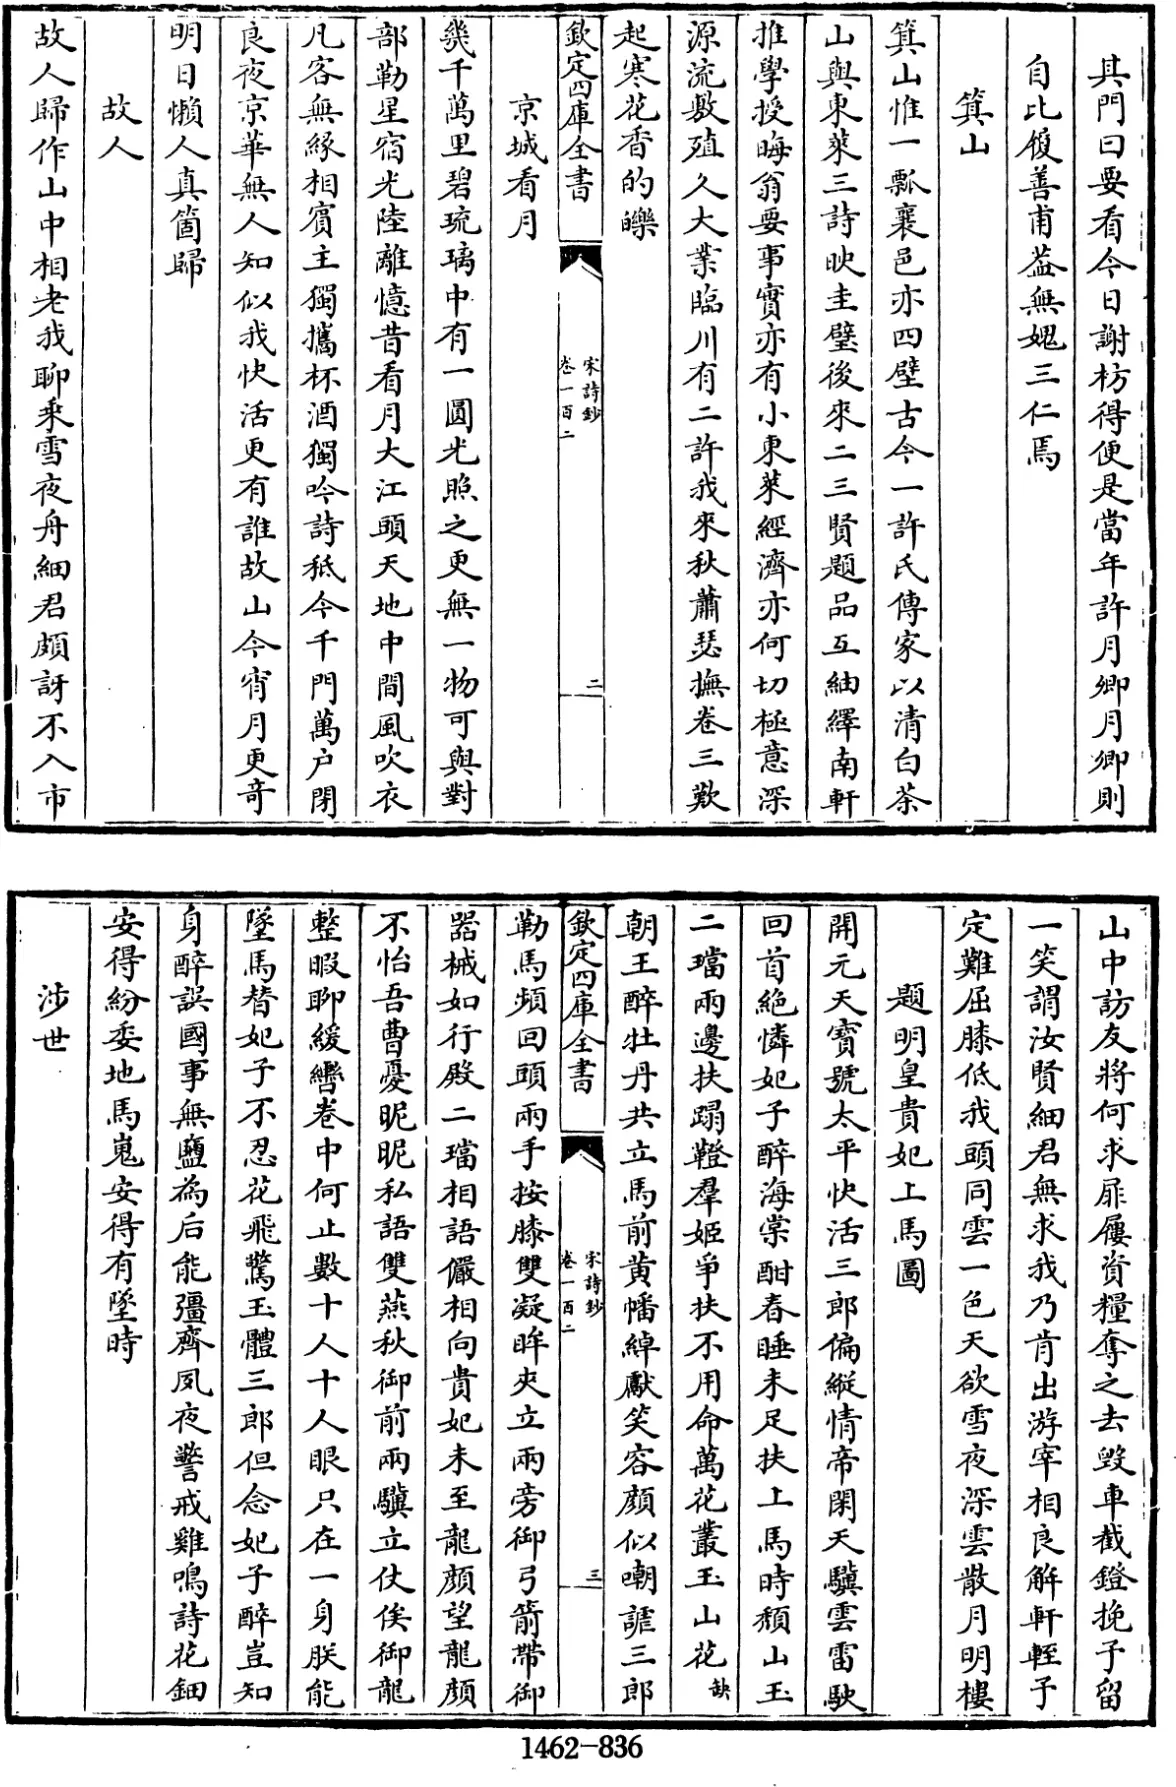 其門曰要看今日謝枋得便是當年許月卿月卿則
自比履善甫葢無媿三仁焉
箕山
箕山惟一瓢襄邑亦四壁古今一許氏傳家以清白茶
山與東萊三詩映圭璧後來二三賢題品互紬繹南軒
推學授晦翁要事實亦有小東萊經濟亦何切極意深
源流敷殖久大業臨川有二許我來秋蕭瑟撫卷三歎
起寒花香的皪
欽定四庫全書
宋詩鈔
卷一百二
二
京城看月
幾千萬里碧琉璃中有一圓光照之更無一物可與對
部勒星宿光陸離憶昔看月大江頭天地中間風吹衣
凡客無緣相賓主獨攜杯酒獨吟詩秪今千門萬户閉
良夜京華無人知似我快活更有誰故山今宵月更奇
明日懶人真箇歸
故人
故人歸作山中相老我聊乘雪夜舟細君頗訝不入市
山中訪友將何求扉屨資糧奪之去毀車截鐙挽子留
一笑謂汝賢細君無求我乃肯出游宰相良解軒輊子
定難屈膝低我頭同雲一色天欲雪夜深雲散月明樓
題明皇貴妃上馬圖
開元天寶號太平快活三郎偏縱情帝閑天驥雲雷駛
回首絶憐妃子醉海棠酣春睡未足扶上馬時頹山玉
二璫兩邊扶蹋鞾羣姬爭扶不用命萬花叢玉山花缺
朝王醉牡丹共立馬前黄幡綽獻笑容顔似嘲謔三郎
欽定四庫全書
宋詩鈔
卷一百二
三
勒馬頻回頭兩手按膝雙凝眸夾立兩旁御弓箭帶御
器械如行殿二璫相語儼相向貴妃未至龍顔望龍顔
不怡吾曹憂昵昵私語雙燕秋御前兩驥立仗俟御龍
整暇聊緩轡卷中何止數十人十人眼只在一身朕能
墜馬替妃子不忍花飛驚玉體三郎但念妃子醉豈知
身醉誤國事無鹽為后能彊齊夙夜警戒雞鳴詩花鈿
安得紛委地馬嵬安得有墜時
涉世
1462-836